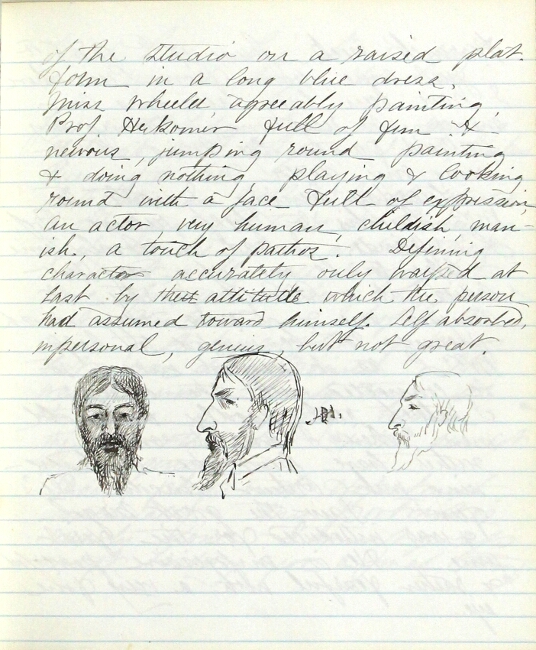 of the studio on a raised plat-
form in a long blue dress.
Miss Wheeler agreeably painting.
Prof. Herkomer full of fun &
nervous, jumping round painting
& doing nothing playing & looking
round with a face full of expression,
an actor, very human, childish, man-
ish, a touch of pathos. Defining
character accurately only warped at
last by their attitude which the person
had assumed toward himself. Self absorbed,
impersonal, genius, but not great.